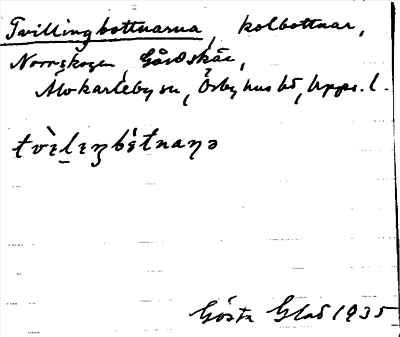 Tvillingbottnarna, kolbottnar,
Norrskogen Gårdskär,
Älvkarleby sn, Örbyhus hd, Upps. l.
tvìlıŋbòtnaɳə
Gösta Glad 1935